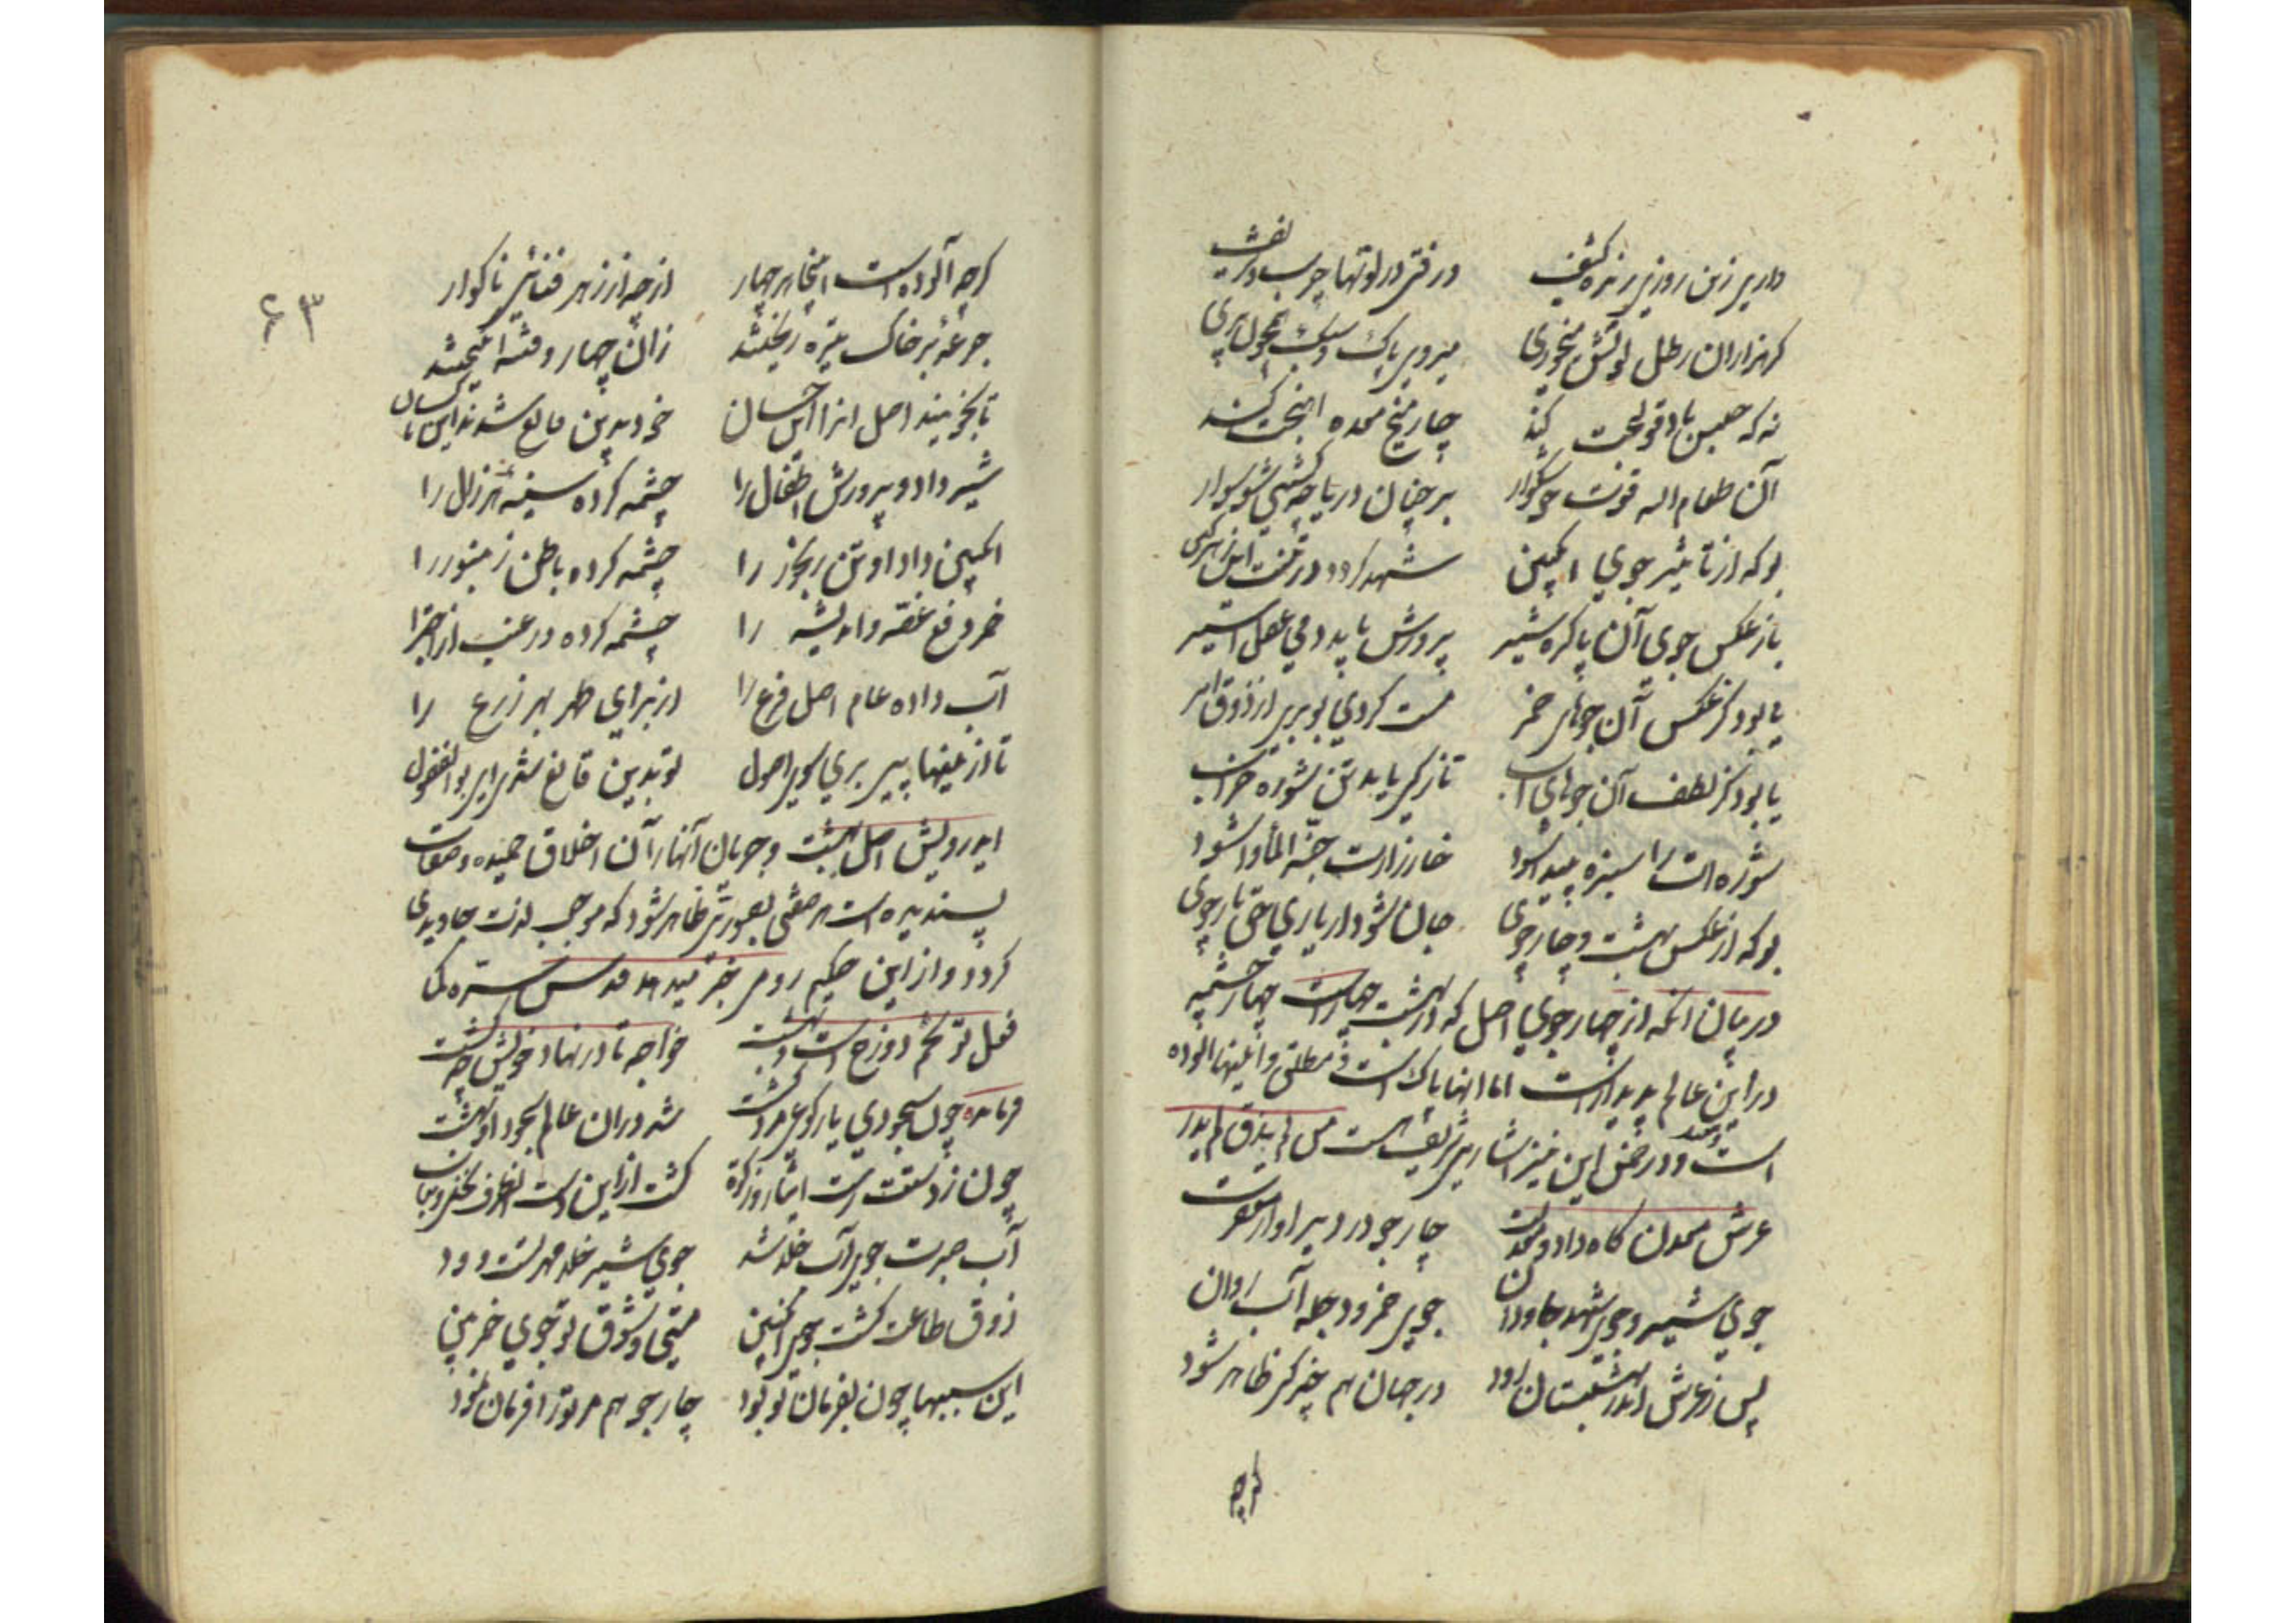 وارهی زین روزی ریزه کثیف در فتی در لوتها چرب و شریف
گر هزاران رطل لوتش میخوری میروی پاک و سبک همچون پری
نه که حبس باد و قولنجت کند چار میخ معده اهنجت کند
آن طعام اله قوت خوشگوار بر چنان دریا چو کشتی شو سوار
بو که از تاثیر جوی انگبین شهد گردد در تنت این زهر کین
یا ز عکس جوی آن پاکیزه شیر پرورش یابد دمی عقل اسیر
یا بود کز عکس آن جوهای خمر مست گردی بو بری از ذوق امر
یا بود کز لطف آن جوهای آب تازگی یابد تن شوره خراب
شوره ات را سبزه پیدا شود خارزارت جنة المأوا شود
بو که از عکس بهشت و چار جوی جان شود از یاری حق یار جوی
در بیان انکه از چهار جوی اصل که در بهشت جهار است چهار چشمه
در این عالم پدیدار است اما انها پاک است مطلق و اینها الوده
است و در ضمن این نیز اشارهی شریف هست من لم یذق لم یدر
عرش معدن کاه داد و معدلت چار جو در زیر او از مغفرت
جوی شیر و جوی شهد جاودان جوی خمر و دجله آب روان
پس ز عرش اندر بهشتستان رود در جهان هم چیزکی ظاهر شود
گرچه
۶۳
گرچه آلوده است اینجا هر چهار از چه از زهر فنا شی ناگوار
جرعه بر خاک تیره ریختند زان چهار و فتنه انگیختند
تا بجویند اصل انرا این خسان خود بدین قانع شدند این ناکسان
شیر داد و پرورش اطفال را چشمه کرده سینه هر زال را
انگبین داد او تن رنجور را چشمه کرده باطن زنبور را
خمر دفع غصه و اندیشه را چشمه کرده در عنب از اجترا
آب داده عام اصل فرع را از برای طهر بهر زرع را
تا از اینها پی بری سوی اصول تو بدین قانع شدی ای بو الفضول
ای درویش اصل بهشت و جریان آنهار آن اخلاق حمیده و صفات
پسندیده است هر صفتی بصورتی ظاهر شود که موجب لذت جاویدی
گردد و از این حکیم رومی خبر میدهد قدس سره کما
فعل تو تخم دوزخ است و بهشت خواجه تا در نهاد خویش چه کشت
فرمانده چون سجودی یا رکوعی مرد کشت شد در آن عالم سجود او بهشت
چون ز دستت رست ایثار و زکوة گشت از این دست آنطرف نخل و نبات
آب صبرت جوی آب خلد شد جوی شیر خلد مهر تست و ود
ذوق طاعت گشت جوی انگبین مستی و شوق تو جوی خمر بین
این سببها چون بفرمان تو بود چار جو هم مر تو را فرمان نمود